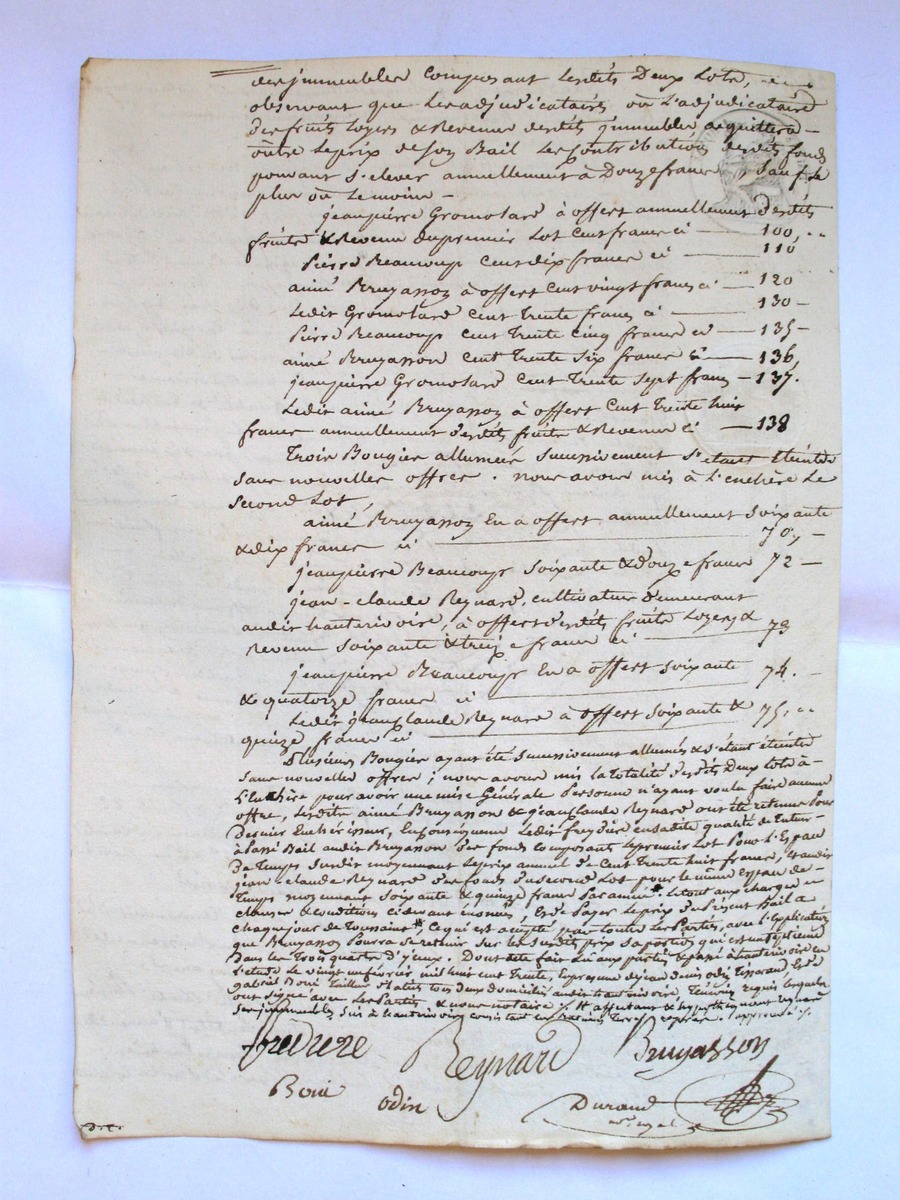 des jmmeubles Composant Lesdits Deux Lots,
observant que Les adjudicataires où L'adjudicataire
des fruits Loyers & Revenus desdits jmmeubles acquittera
outre Le prix de son Bail Les Contributions desdits fonds
pouvant S'elever annuellement à Douze francs Sauf Le
plus où Le moins —
jean pierre Gromolard à offert annuellement desdits
fruits & Revenus du premier Lot Cent francs ci — 100,
Pierre Beaucoup Cent dix francs ci — 110
aimé Bruyasson à offert Cent vingt francs ci — 120
Ledit Gromolard Cent Trente francs ci — 130 —
Pierre Beaucoup Cent Trente Cinq francs ci — 135 —
aimé Bruyasson Cent Trente Six francs ci — 136,
jean pierre Gromolard Cent Trente Sept francs — 137.
Ledit aimé Bruyasson à offert Cent Trente huit
francs annuellement desdits fruits & Revenus ci — 138
Trois Bougies allumées Successivement S'etant éteintes
Sans nouvelles offres. nous avons mis à L'enchère Le
Second Lot,
aimé Bruyasson En a offert annuellement Soixante
& dix francs ci — 70, —
jean pierre Beaucoup Soixante & douze francs 72 —
jean-claude Reynard, cultivateur demeurant
audit hauterivoire, à offert desdits fruits Loyers &
Revenus Soixante & treize francs ci — 73
jean pierre Beaucoup En a offert Soixante
& quatorze francs ci — 74. —
Ledit jean Claude Reynard à offert Soixante &
quinze francs ci — 75,
Plusieurs Bougies ayant été Successivement allumées & S'étant éteintes
Sans nouvelles offres; nous avons mis La totalité desdits Deux Lots à
L'Enchère pour avoir une mise Générale Personne n'ayant voulu faire aucune
offre, Lesdits aimé Bruyasson & jean Claude Reynard ont été retenus Pour
Dernier Enchérisseurs, En Conséquence Ledit freydiere en sadite qualité de Tuteur
à Passé Bail audit Bruyasson des fonds Composants Le premier Lot Pour L'Espace
De Temps Susdit moyennant Le prix annuel de Cent Trente huit francs, & audit
jean-claude Reynard des fonds du Second Lot pour Le même Espace de
Temps moyennant Soixante & quinze francs Par année Le tout aux charges
Clauses & conditions cidevant énoncées, & de Payer Le prix du Présent Bail à
chaque jour de Toussaint, Ce qui est accepté par toutes Les Parties, avec L'Explication
que Bruyasson Pourra Se retenir Sur Les Susdits prix Sa portion qui est un Septieme
Dans Les Trois quarts d'jceux. Dont acte fait Lu aux parties & passé à hauterivoire en
L'etude Le vingt un fevrier mil huit cent Trente, En présence de jean denis odin Tisserand & de
gabriel Boni Tailleur d'habits tous deux domiciliés audit hauterivoire, Témoins requis Lesquels
ont signé avec Les Parties & nous notaire
freidiere Reynard Bruyasson
Boni odin Durand